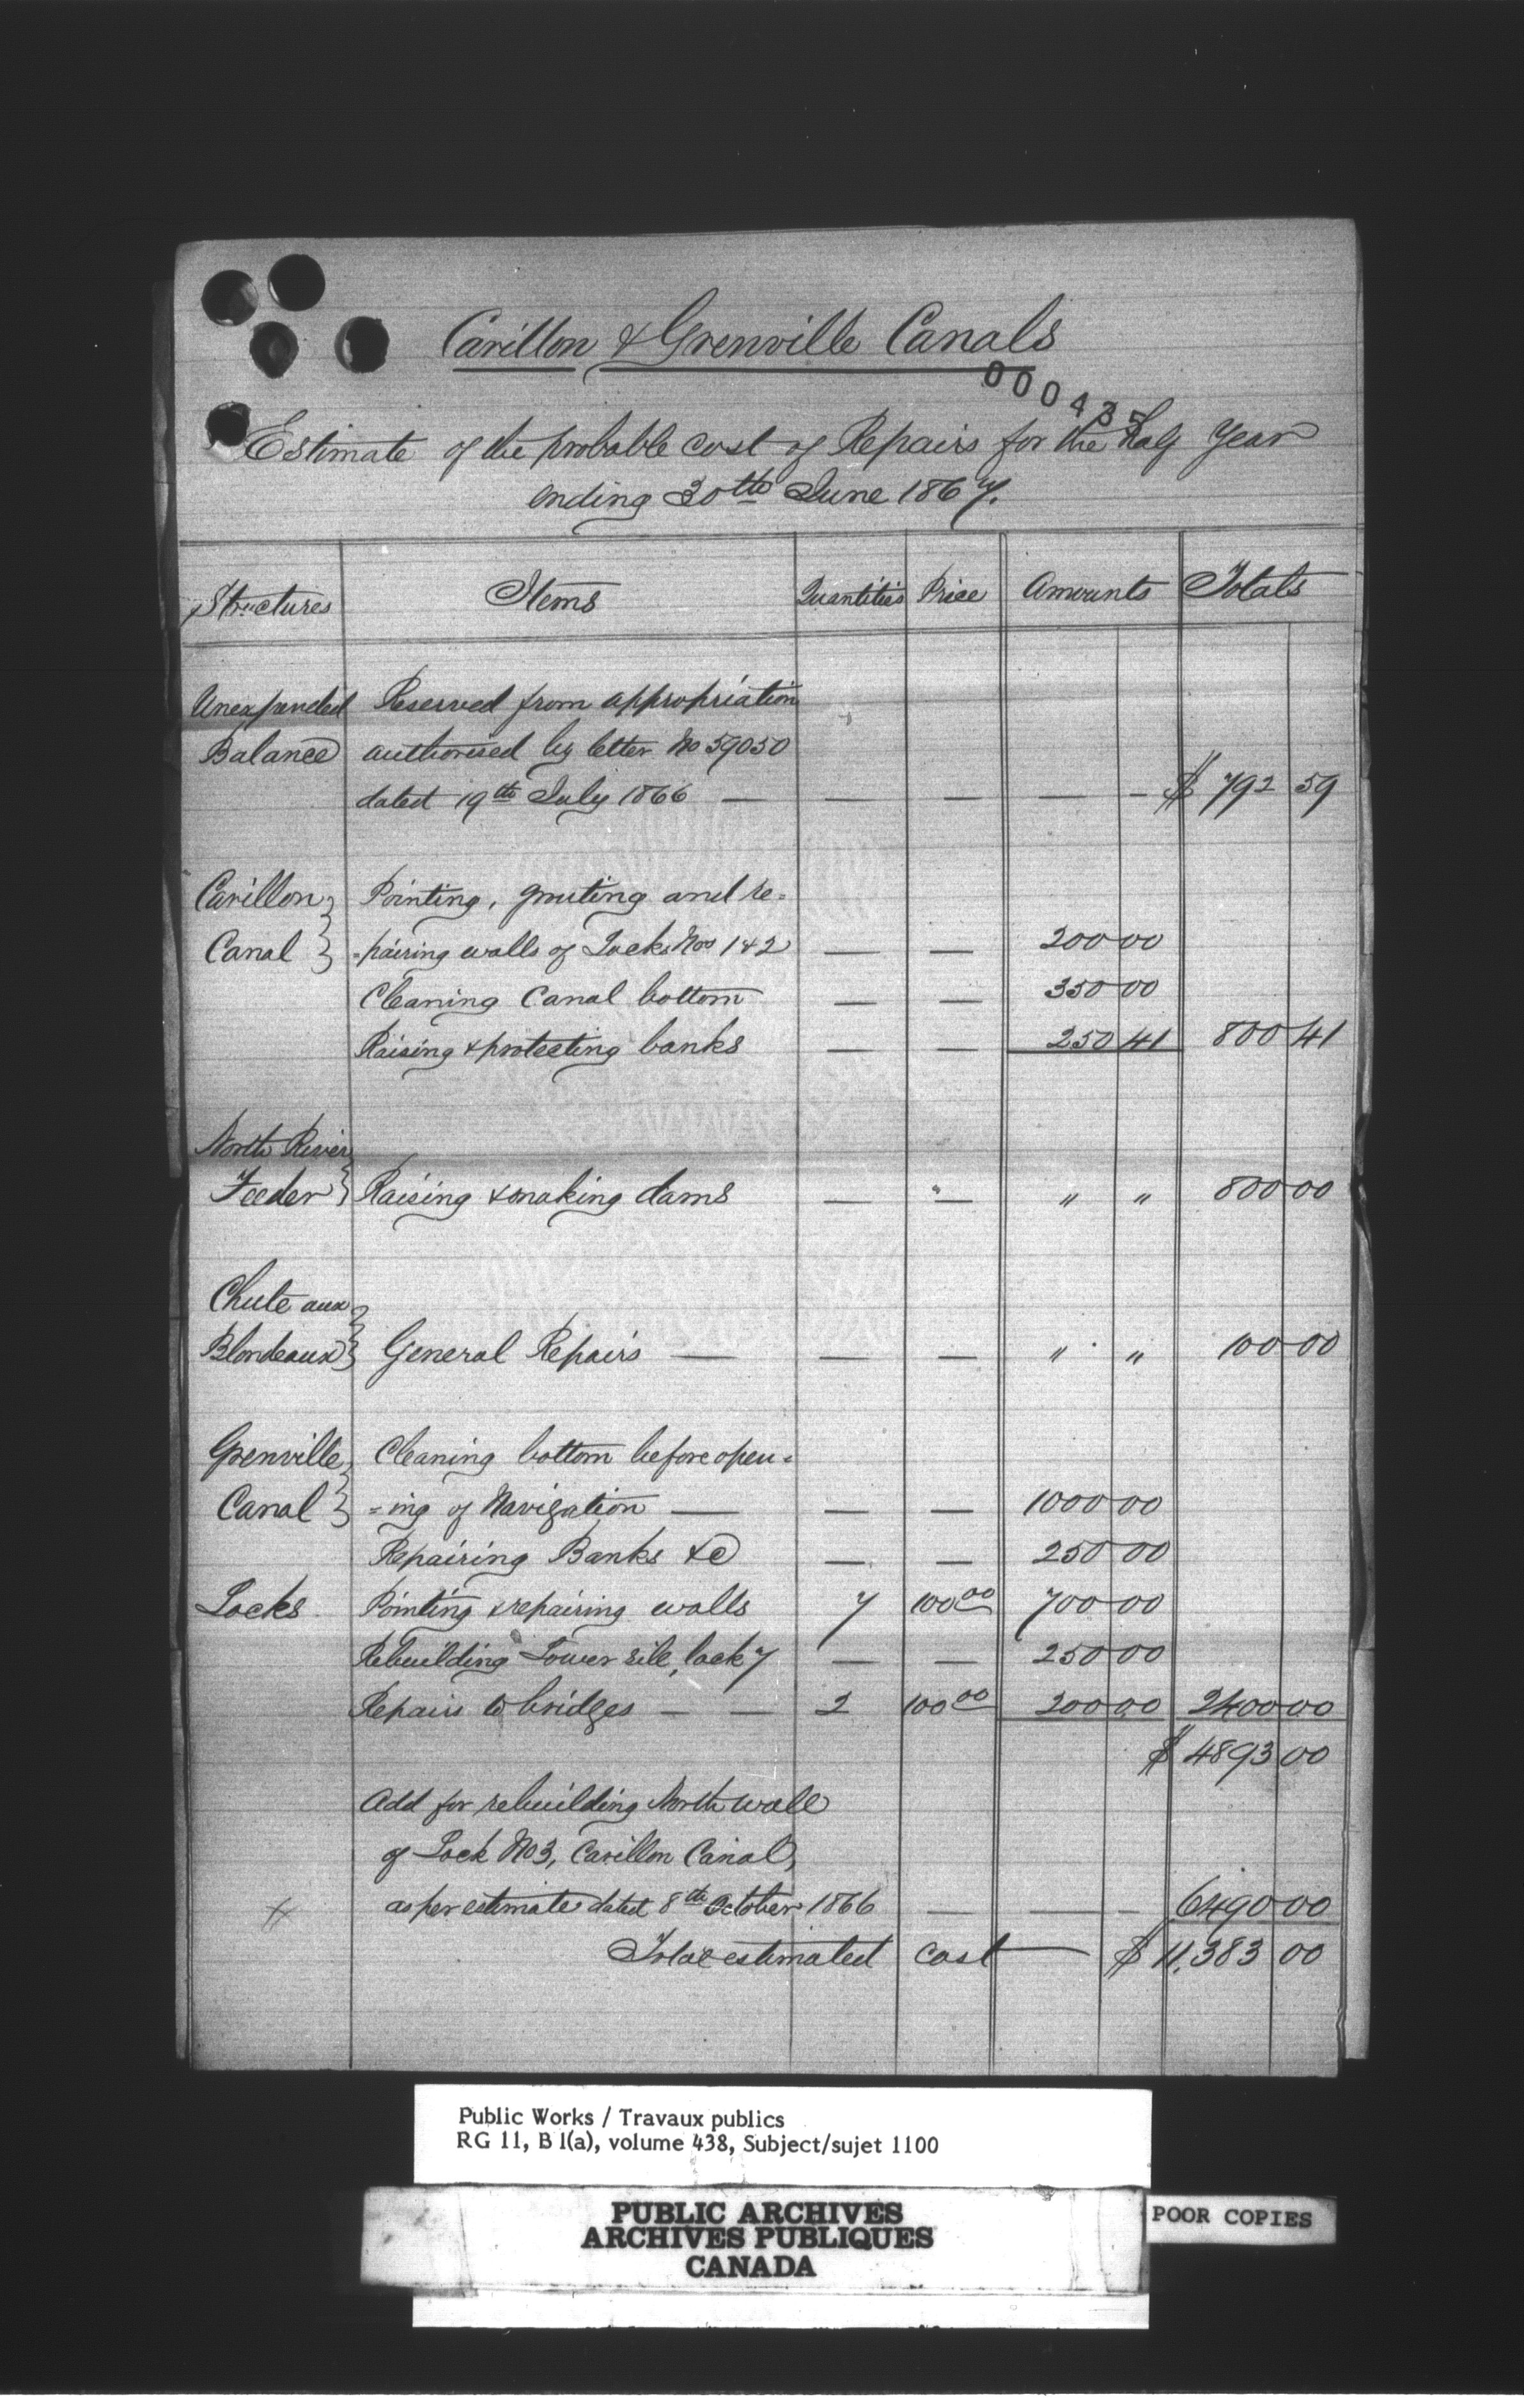 Carillon & Grenville Canals
000435
Estimate of the probable cost of Repairs for the half Year
ending 30th June 1867.
Structures Items Quantities Price Amounts Totals
Unexpended Reserved from appropriation
Balance authorised by letter No 59050
dated 19th July 1866 — — — — — $ 792 59
Carillon Pointing, grouting and re=
Canal =pairing walls of Locks Nos 1 & 2 — — 200 00
Cleaning Canal bottom — — 350 00
Raising & protecting banks — — 250 41 800 41
North River
Feeder Raising & making dams — — " " 800 00
Chute aux
Blondeaux General Repairs — — — " " 100 00
Grenville Cleaning bottom before open=
Canal =ing of Navigation — — — 1000 00
Repairing Banks &c — — 250 00
Locks Pointing & repairing walls 7 100 00 700 00
Rebuilding Lower sill, lock 7 — — 250 00
Repairs to bridges — — 2 100 00 200 00 2400 00
$ 4893 00
Add for rebuilding North wall
of Lock No 3, Carillon Canal,
as per estimate dated 8th October 1866 — — — 6490 00
Total estimated cost — $ 11,383 00
Public Works / Travaux publics
RG 11, B 1(a), volume 438, Subject/sujet 1100
PUBLIC ARCHIVES
ARCHIVES PUBLIQUES
CANADA
POOR COPIES